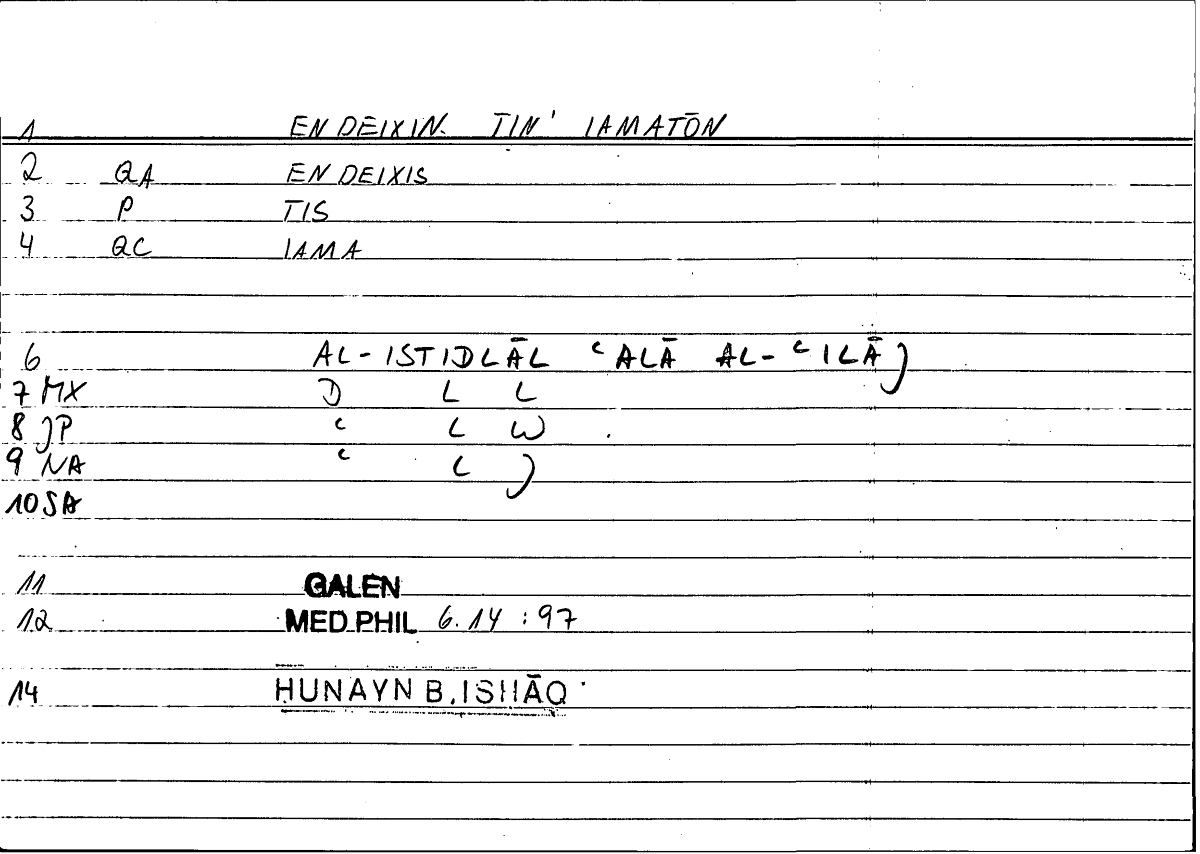 1 EN DEIXIN. TIN' IAMATŌN
2 QA EN DEIXIS
3 P TIS
4 QC IAMA
6 AL-ISTIDLĀL ʿALĀ AL-ʿILĀJ
7 MX D L L
8 JP ʿ L W
9 NA ʿ L J
10 SA
11 GALEN
12 MED.PHIL 6.14 : 97
14 HUNAYN B. ISHĀQ